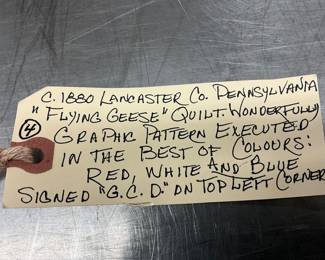 C. 1880 LANCASTER CO. PENNSYLVANIA
"FLYING GEESE" QUILT. WONDERFULLY
④ GRAPHIC PATTERN EXECUTED
IN THE BEST OF COLOURS:
RED, WHITE AND BLUE
SIGNED "G.C.D." ON TOP LEFT CORNER